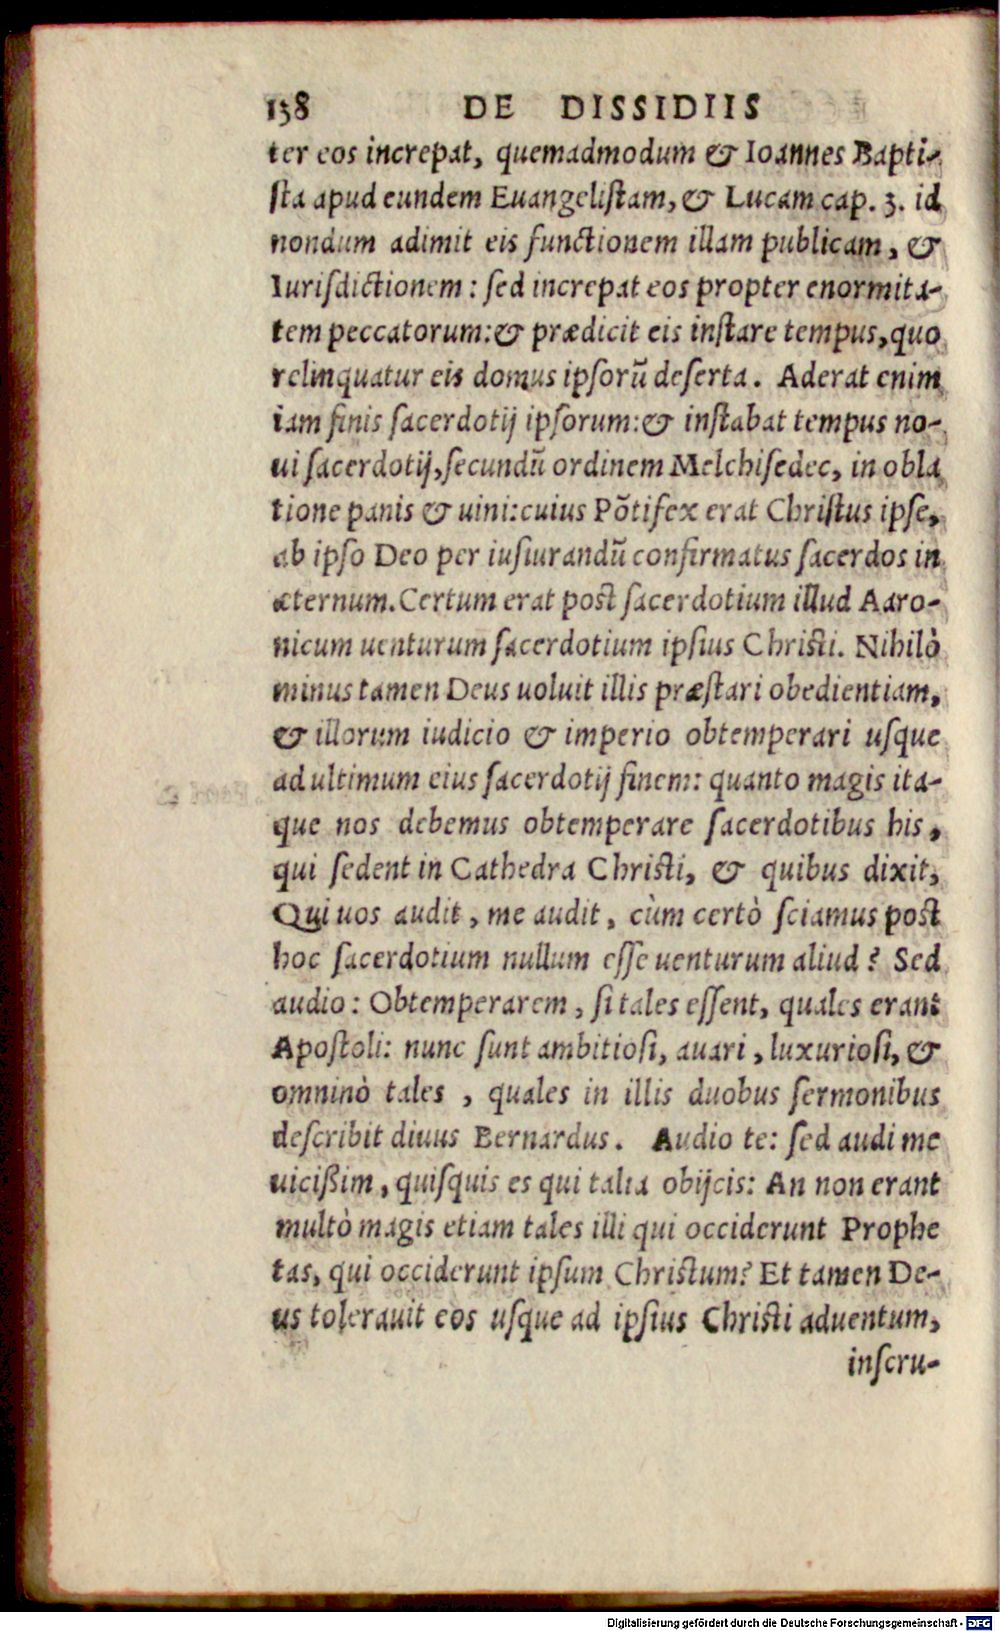 158 DE DISSIDIIS
ter eos increpat, quemadmodum & Ioannes Bapti-
sta apud eundem Euangelistam, & Lucam cap. 3. id
nondum adimit eis functionem illam publicam, &
Iurisdictionem: sed increpat eos propter enormita-
tem peccatorum: & prædicit eis instare tempus, quo
relinquatur eis domus ipsorũ deserta. Aderat enim
iam finis sacerdotij ipsorum: & instabat tempus no-
ui sacerdotij, secundũ ordinem Melchisedec, in obla
tione panis & uini: cuius Põtifex erat Christus ipse,
ab ipso Deo per iusiurandũ confirmatus sacerdos in
æternum. Certum erat post sacerdotium illud Aaro-
nicum uenturum sacerdotium ipsius Christi. Nihilò
minus tamen Deus uoluit illis præstari obedientiam,
& illorum iudicio & imperio obtemperari usque
ad ultimum eius sacerdotij finem: quanto magis ita-
que nos debemus obtemperare sacerdotibus his,
qui sedent in Cathedra Christi, & quibus dixit,
Qui uos audit, me audit, cùm certò sciamus post
hoc sacerdotium nullum esse uenturum aliud? Sed
audio: Obtemperarem, si tales essent, quales erant
Apostoli: nunc sunt ambitiosi, auari, luxuriosi, &
omninò tales, quales in illis duobus sermonibus
describit diuus Bernardus. Audio te: sed audi me
uicißim, quisquis es qui talia obijcis: An non erant
multò magis etiam tales illi qui occiderunt Prophe
tas, qui occiderunt ipsum Christum? Et tamen De-
us tolerauit eos usque ad ipsius Christi aduentum,
inscru-
Digitalisierung gefördert durch die Deutsche Forschungsgemeinschaft - DFG